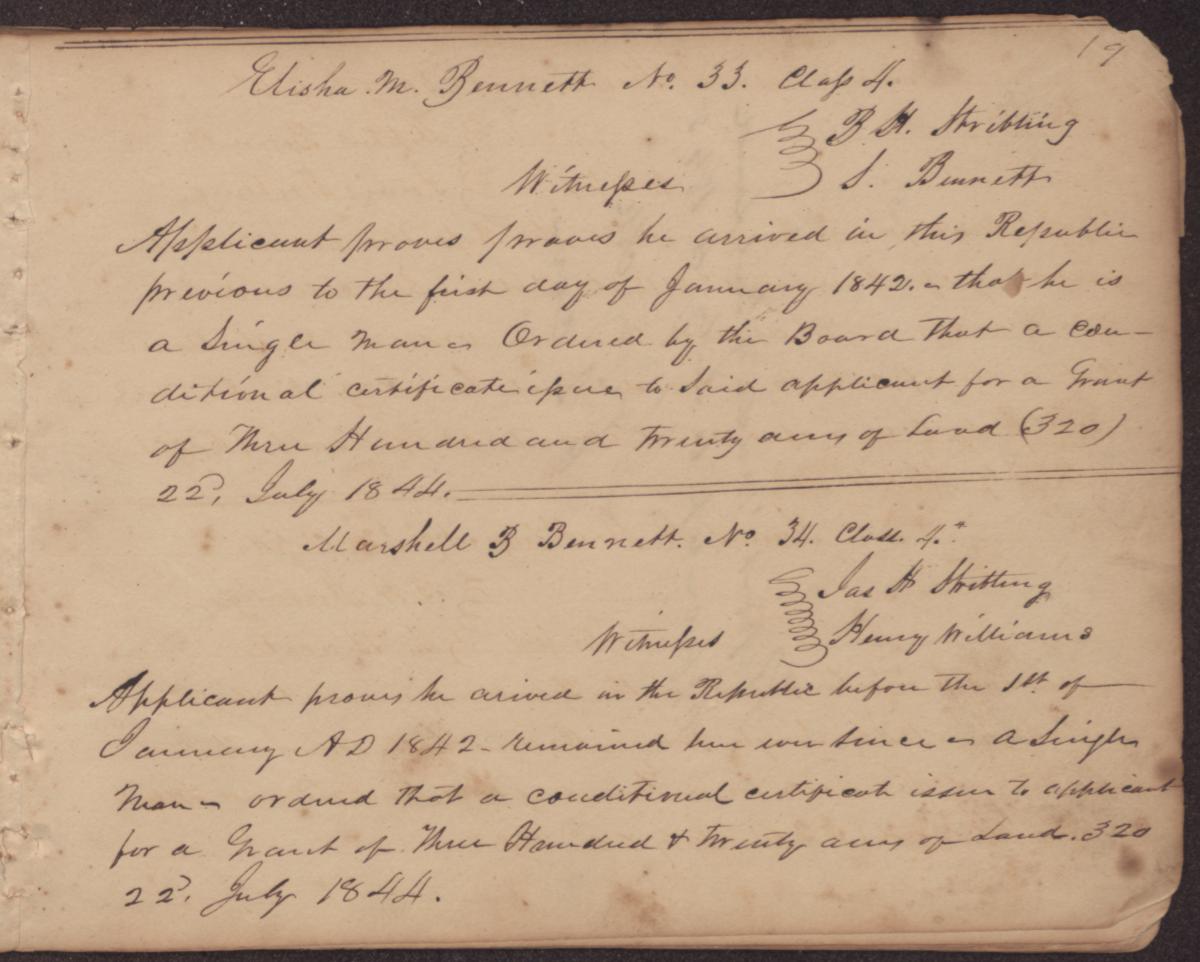 19
Elisha M. Bennett No. 33. Class 4.
B H. Stribling
Witnesses S. Bennett
Applicant proves proves he arrived in this Republic
previous to the first day of January 1842. & that he is
a Single man & Ordered by the Board that a con-
ditional certificate issue to Said applicant for a Grant
of Three Hundred and Twenty acres of Land (320)
22d, July 1844.
Marshell B Bennett. No 34. Class. 4.th
Jas H Stribling
Witnesses Henry Williams
Applicant proves he arived in the Republic before the 1st of
January AD 1842 - remained here ever since & a Single
man & ordered that a conditional certificate issue to applicant
for a Grant of Three Hundred & Twenty acres of Land. 320
22d. July 1844.